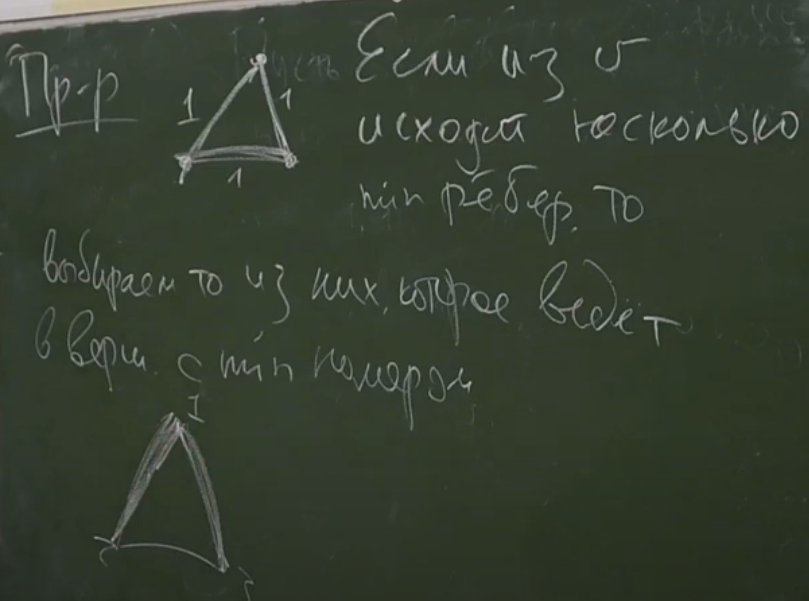 Пр-р
1
1
1
Если из v
исходят несколько
min рёбер, то
выбираем то из них, которое ведёт
в верш. с min номером
1
2
3